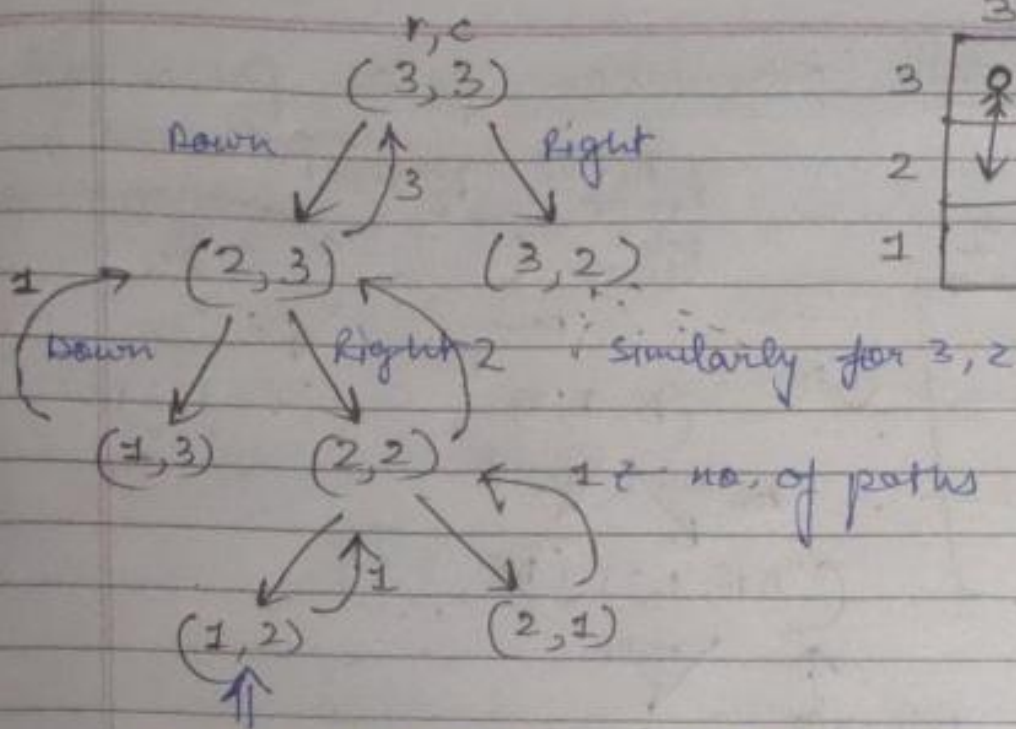 r, c
3
(3,3)
3
Down
Right
3
2
(2,3)
(3,2)
1
1
Down
Right
2
Similarly for 3, 2
(1,3)
(2,2)
1
no. of paths
1
(1,2)
(2,1)